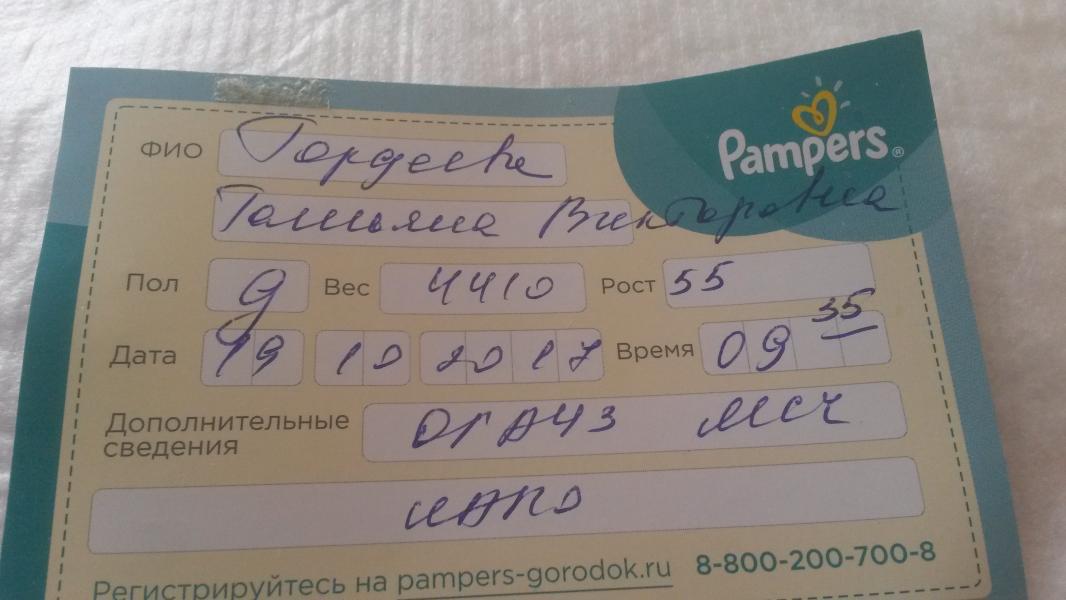 Pampers®
ФИО Гордеева
Татьяна Викторовна
Пол д Вес 4410 Рост 55
Дата 19 10 2017 Время 09 35
Дополнительные сведения ОГАУЗ МСЧ
ИАПО
Регистрируйтесь на pampers-gorodok.ru 8-800-200-700-8